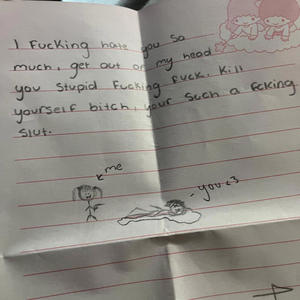 I Fucking hate you so
much, get out of my head
you stupid Fucking fuck. Kill
yourself bitch, your such a fcking
slut.
me
- you <3